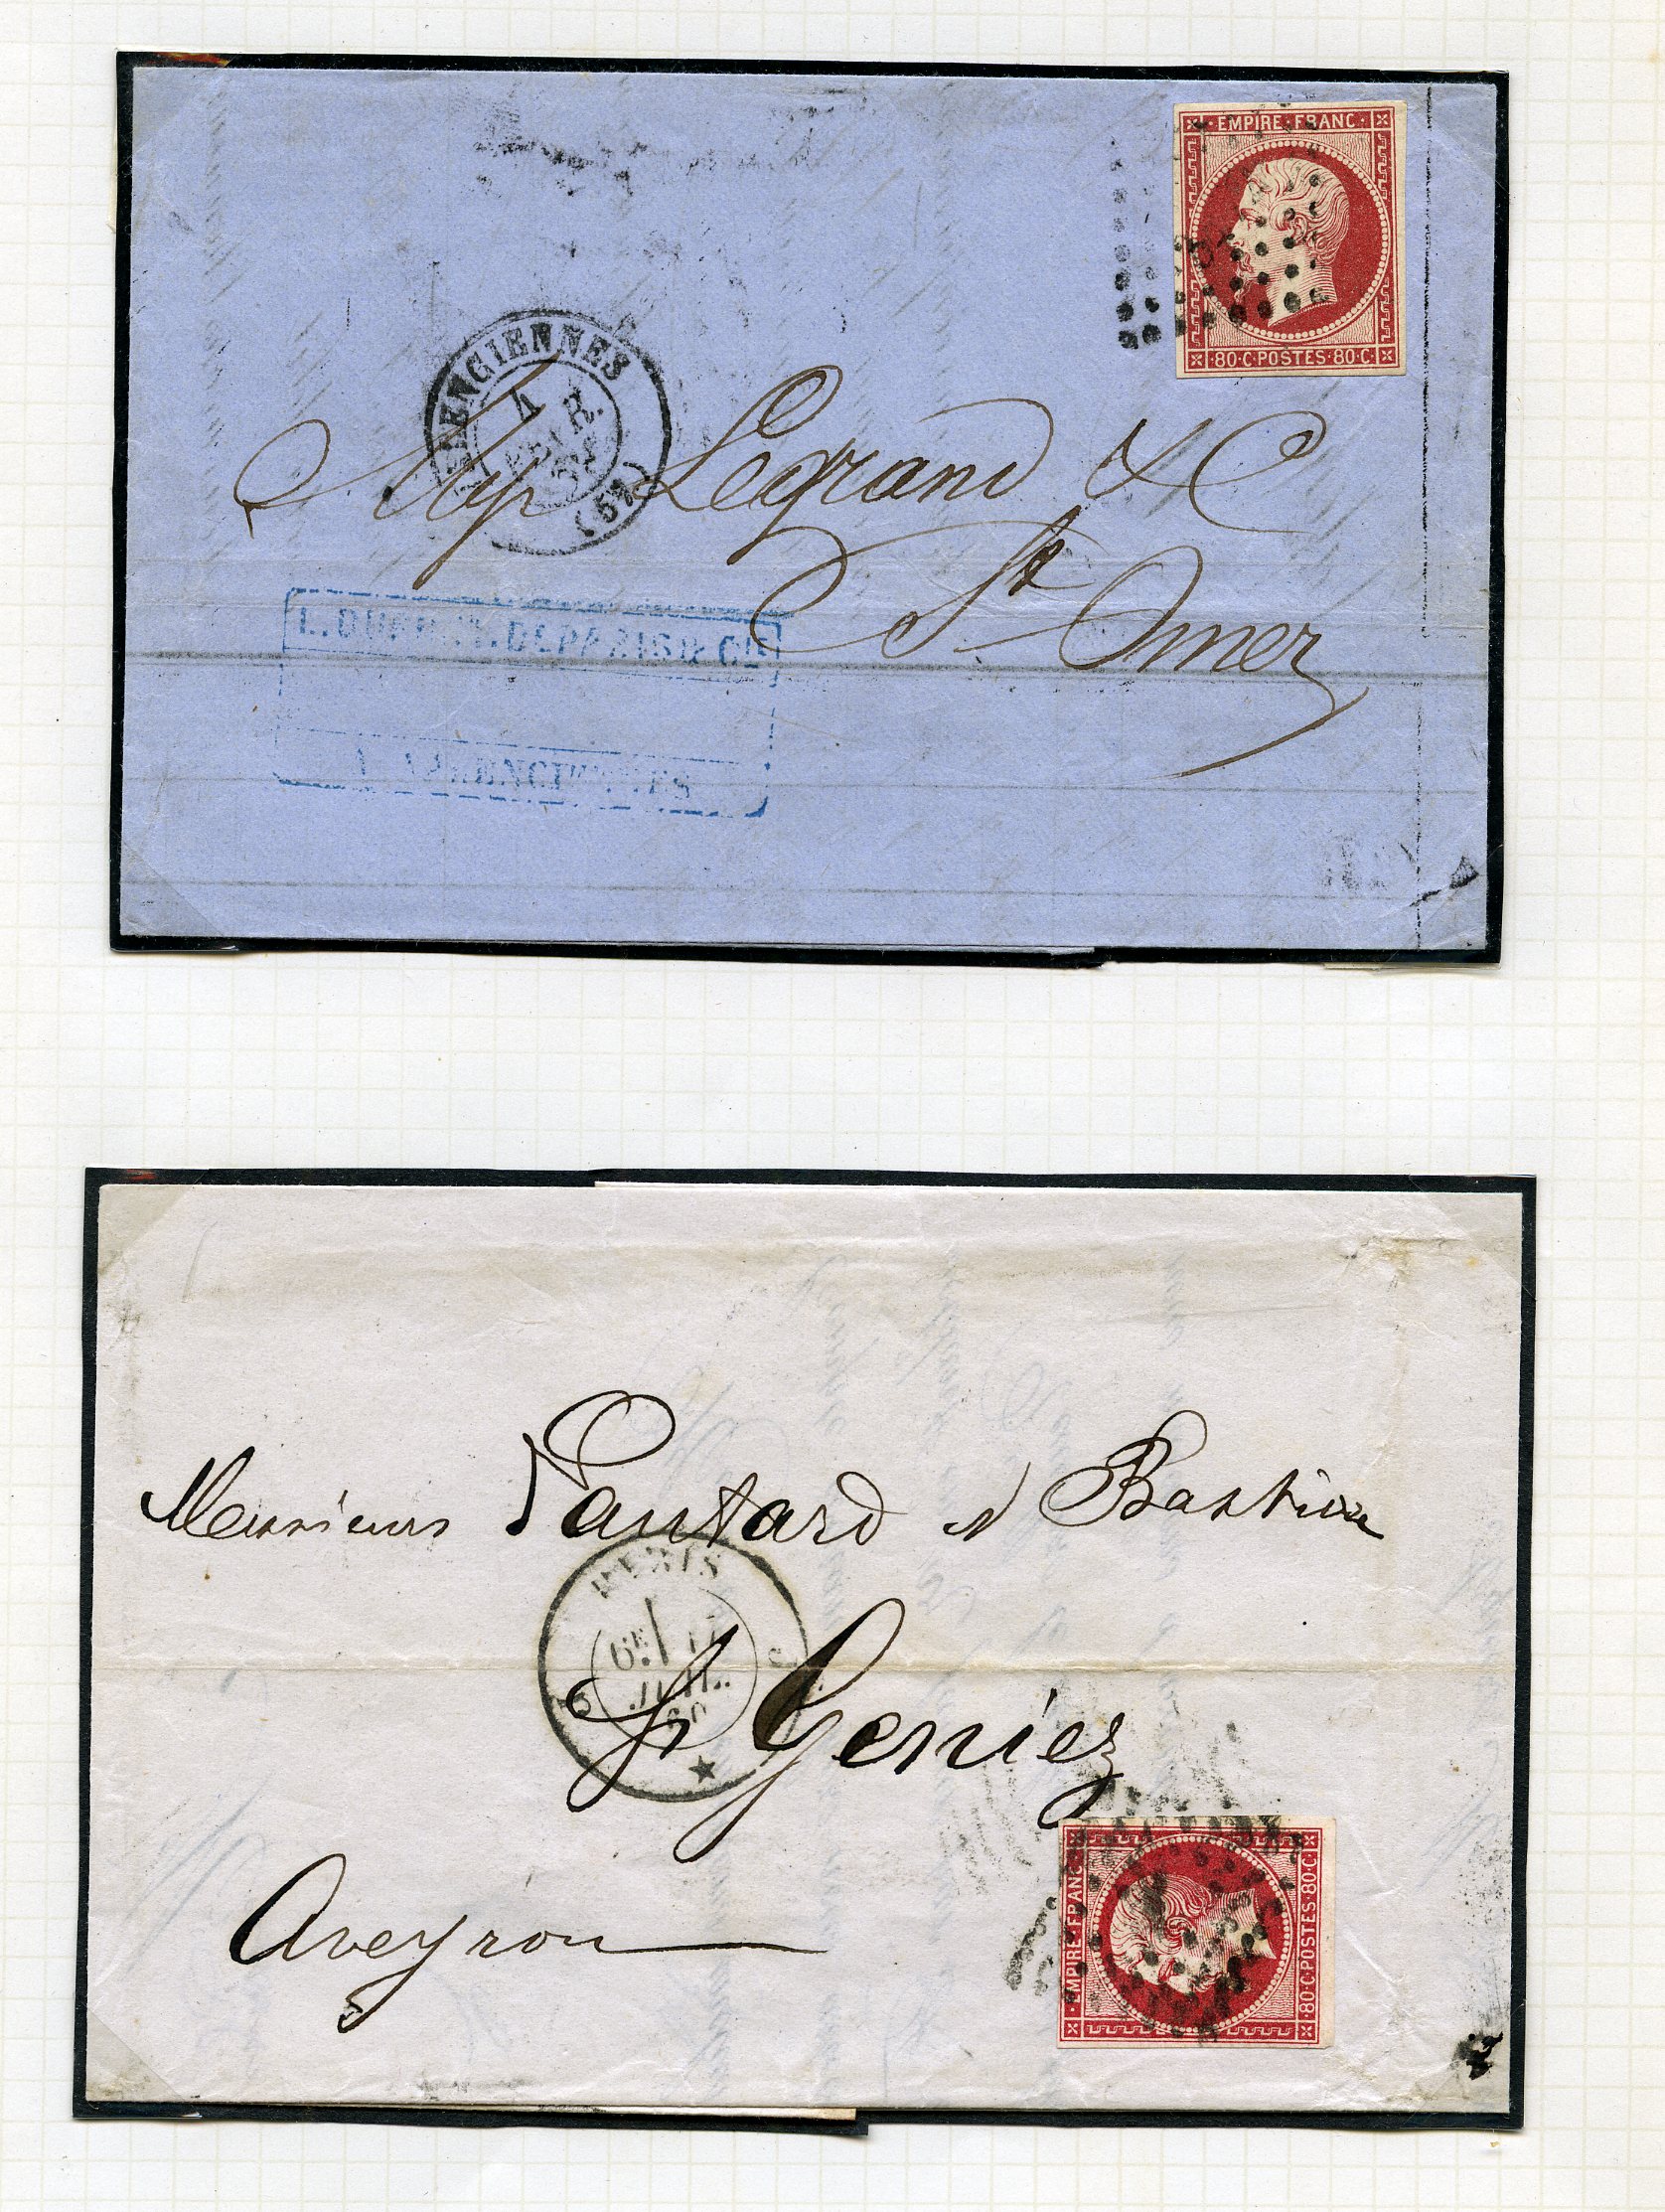 EMPIRE·FRANC·
·80·C·POSTES·80·C·
LENCIENNES
4
R.
(57)
Legrand & C
St Omer
L. DEPARIS & CIE
Messieurs Pautard et Bastide
PARIS
6E 17
JUIL.
60
St Geniez
Aveyron
·EMPIRE·FRANC·
·80·C·POSTES·80·C·